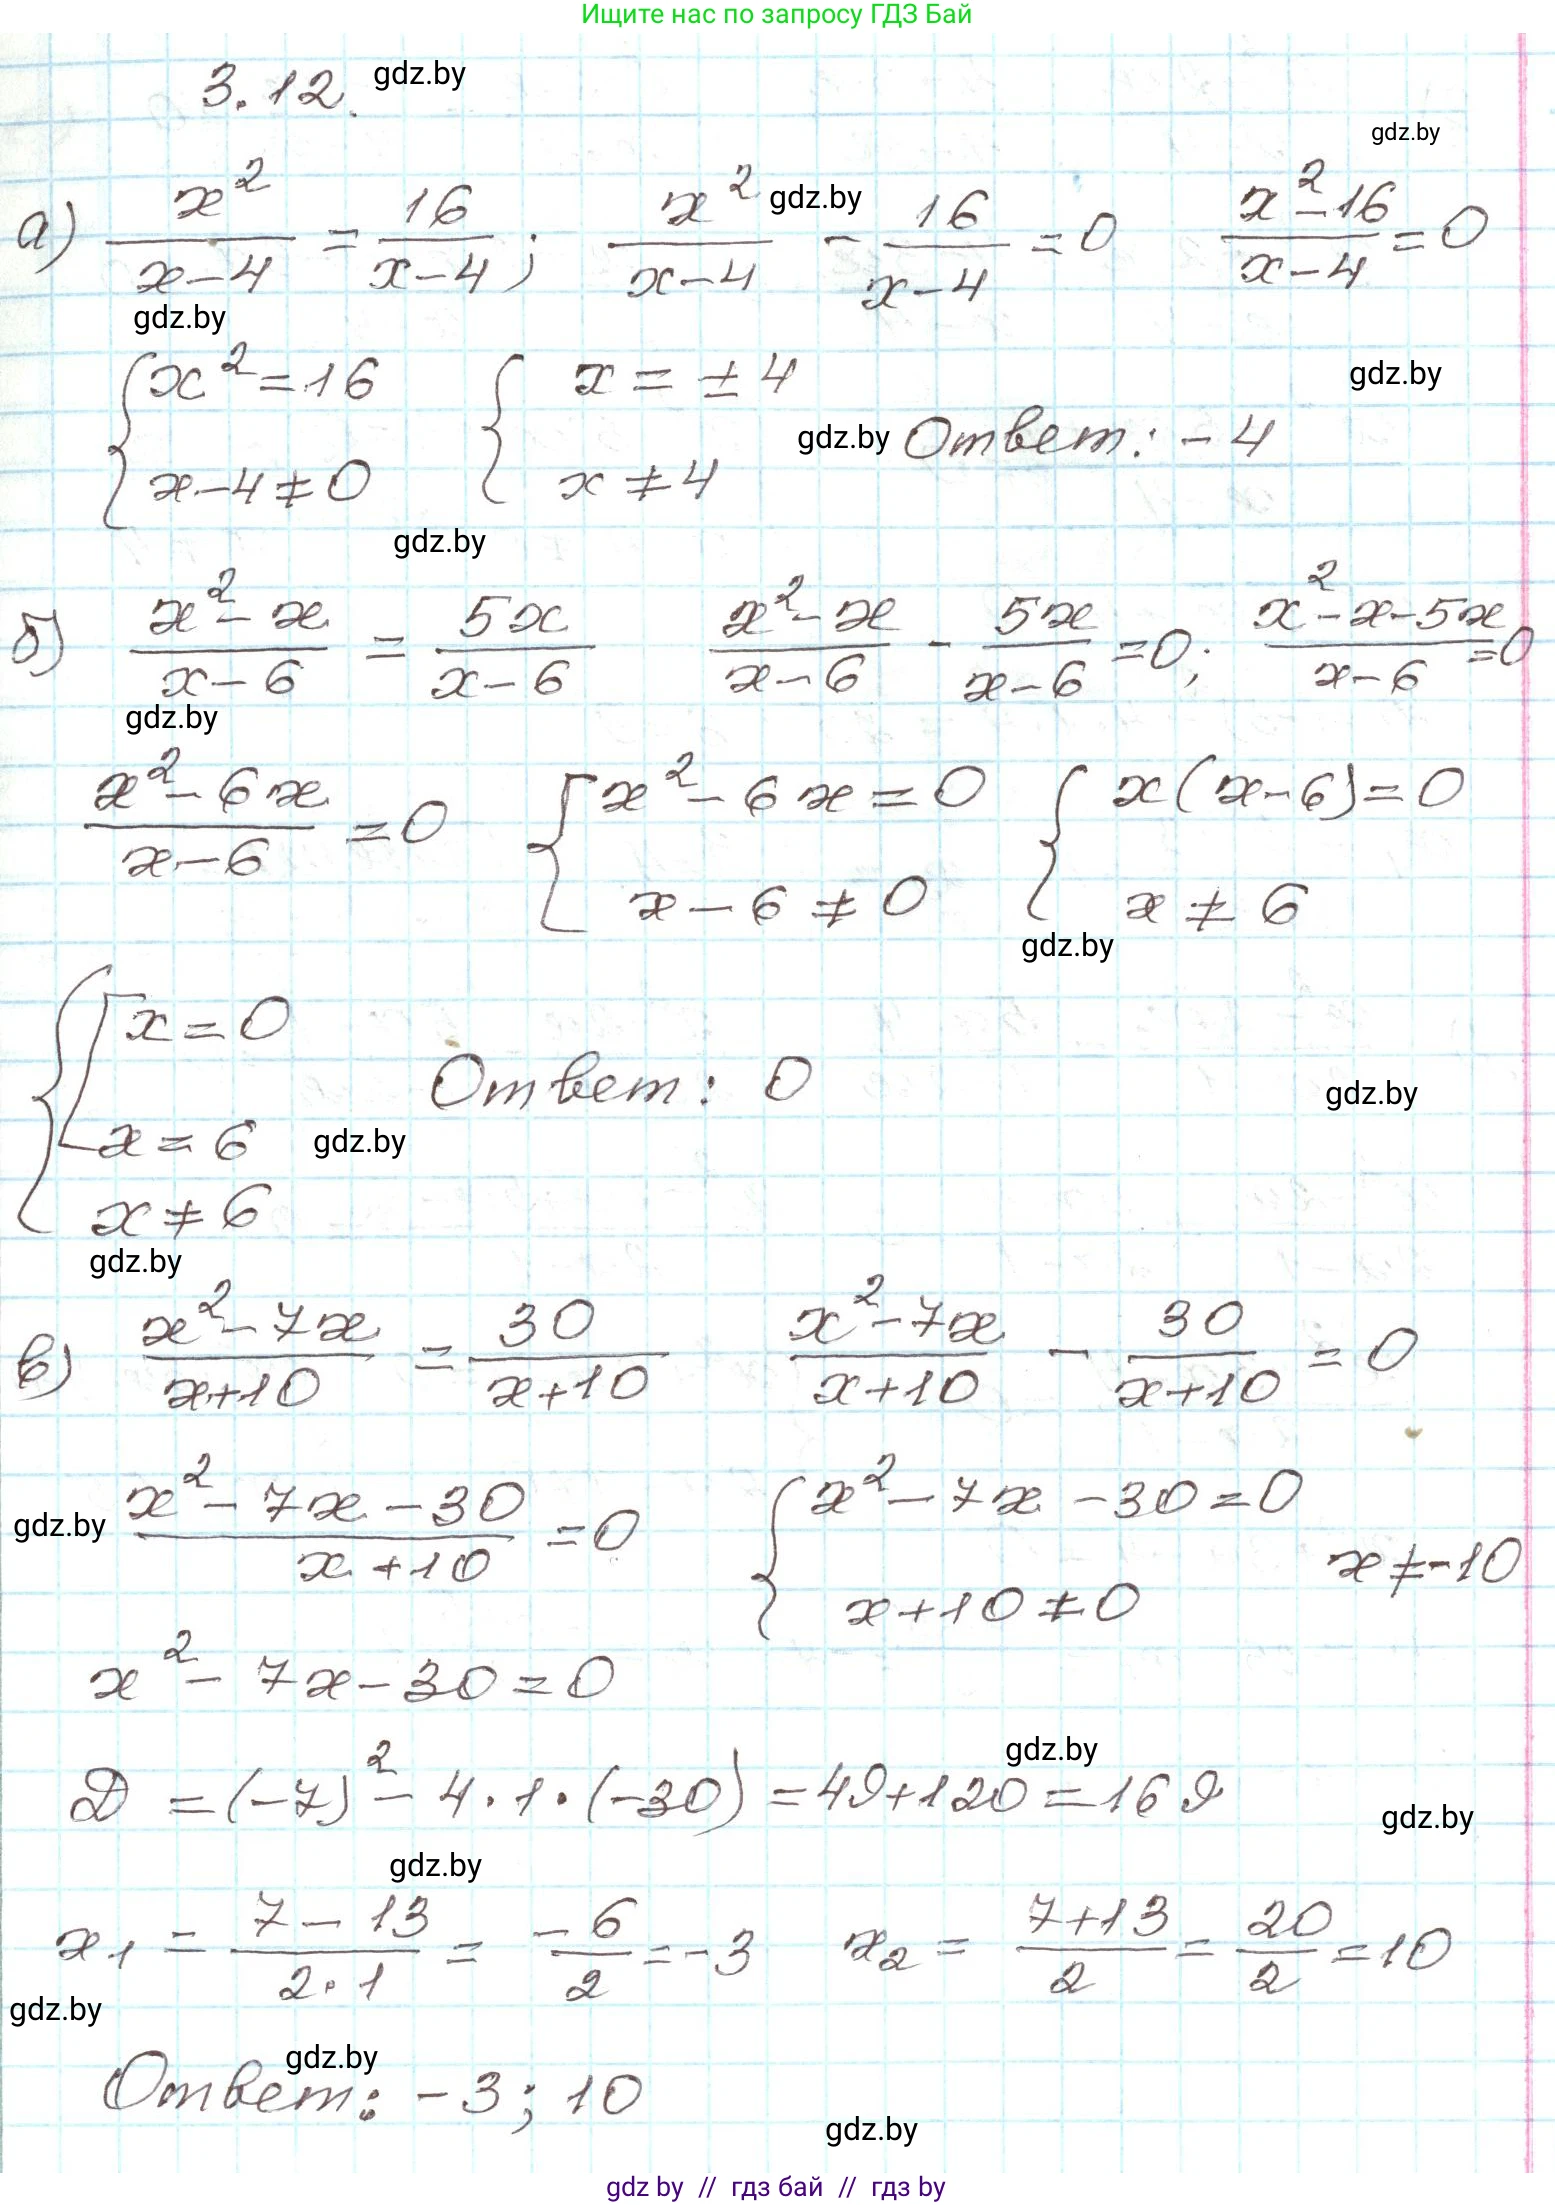 Ищите нас по запросу ГДЗ Бай
3.12. gdz.by
gdz.by
а) x²/(x-4) = 16/(x-4); x²/(x-4) - 16/(x-4) = 0 (x²-16)/(x-4) = 0
gdz.by
gdz.by
{ x² = 16 { x = ±4
gdz.by
x-4 ≠ 0 x ≠ 4 gdz.by Ответ: -4
gdz.by
б) (x²-x)/(x-6) = 5x/(x-6) (x²-x)/(x-6) - 5x/(x-6) = 0; (x²-x-5x)/(x-6) = 0
gdz.by
(x²-6x)/(x-6) = 0 { x²-6x = 0 { x(x-6) = 0
x-6 ≠ 0 x ≠ 6
gdz.by
{ [ x = 0
Ответ: 0 gdz.by
x = 6 gdz.by
x ≠ 6
gdz.by
в) (x²-7x)/(x+10) = 30/(x+10) (x²-7x)/(x+10) - 30/(x+10) = 0
gdz.by (x²-7x-30)/(x+10) = 0 { x²-7x-30 = 0
x+10 ≠ 0 x ≠ -10
x²-7x-30 = 0
gdz.by
D = (-7)²-4·1·(-30) = 49+120 = 169
gdz.by
gdz.by
x₁ = (7-13)/(2·1) = -6/2 = -3 x₂ = (7+13)/2 = 20/2 = 10
gdz.by
gdz.by
Ответ: -3; 10
gdz.by
gdz by // гдз бай // гдз by